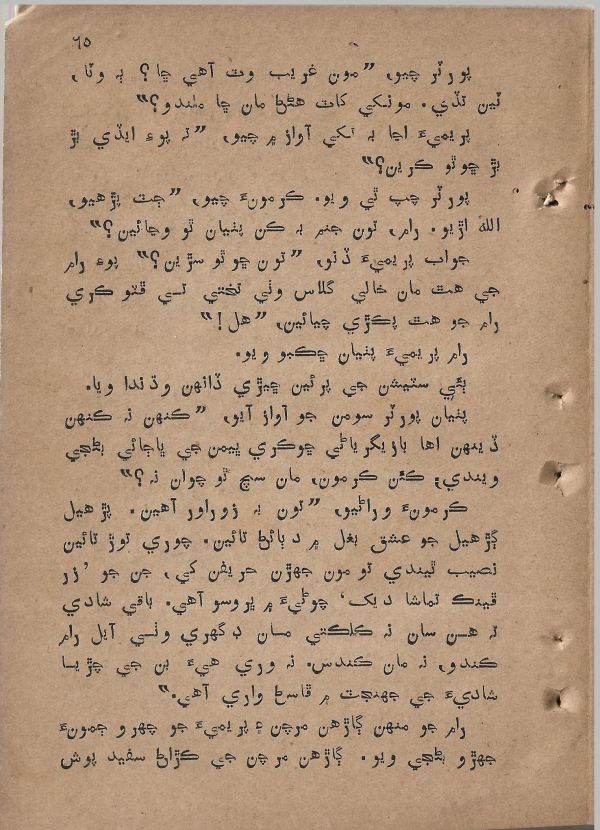 ٦٥
پورٽر چيو، ”مون غريب وٽ آهي ڇا؟ ٻه وٽا،
ٽين ٿڏي. مونکي کاٽ هڻڻ مان ڇا ملندو؟“
پريميءَ اڃا به تکي آواز ۾ چيو، ”ته پوءِ ايڏي بڙ
بڙ ڇو ٿو ڪرين؟“
پورٽر چپ ٿي ويو. ڪرمونءَ چيو، ”جٽ پڙهيو،
الله اڙيو. رام، تون جنم به ڪن پٺيان ٿو وڃائين؟“
جواب پريميءَ ڏنو، ”تون ڇو ٿو سڙين؟“ پوءِ رام
جي هٿ مان خالي گلاس وٺي تختي تي ڦٽو ڪري
رام جو هٿ پڪڙي چيائين، ”هل!“
رام پريميءَ پٺيان ڇڪبو ويو.
ٻئي سٽيشن جي پرئين ڇيڙي ڏانهن وڌندا ويا.
پٺيان پورٽر سومن جو آواز آيو، ”ڪنهن نه ڪنهن
ڏينهن اها بازيگرياڻي ڇوڪري ڀيمن جي ڀاڄائي بڻجي
ويندي؛ ڪئن ڪرمون، مان سچ ٿو چوان نه؟“
ڪرمونءَ وراڻيو، ”تون به زوراور آهين. پڙهيل
ڳڙهيل جو عشق بغل ۾ دٻائڻ تائين. چوري توڙ تائين
نصيب ٿيندي تو مون جهڙن حريفن کي، جن جو ’زر
ڦينڪ تماشا ديک‘ چوڻيءَ ۾ ڀروسو آهي. باقي شادي
نه هن سان نه ڪلڪتي مان ڊگهري وٺي آيل رام
ڪندو، نه مان ڪندس. نه وري هيءَ بن جي چڙيا
شاديءَ جي جهنجٽ ۾ ڦاسڻ واري آهي.“
رام جو منهن ڳاڙهن مرچن ۽ پريميءَ جو چهرو ڄمونءَ
جهڙو بڻجي ويو. ڳاڙهن مرچن جي ڪڙاڻ سفيد پوش